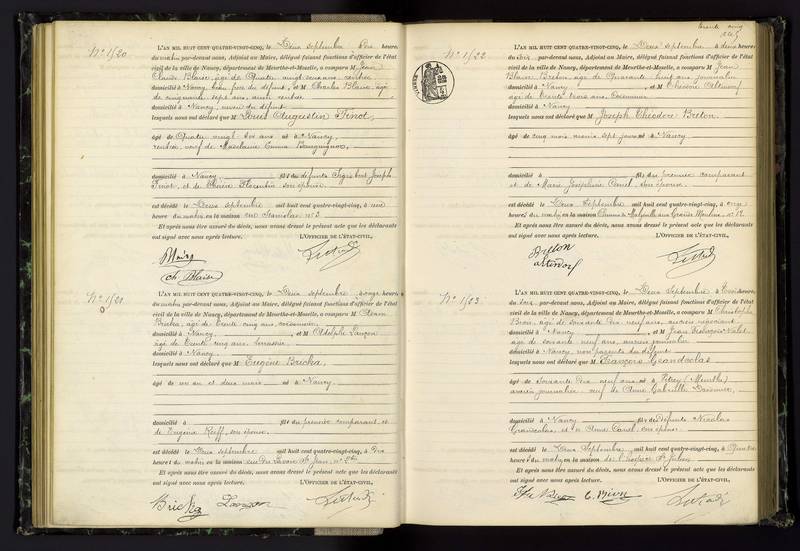 N° 1120
L'AN MIL HUIT CENT QUATRE-VINGT-CINQ, le Deux septembre, à dix heures
du matin par-devant nous, Adjoint au Maire, délégué faisant fonctions d'officier de l'état
civil de la ville de Nancy, département de Meurthe-et-Moselle, a comparu M. Jean
Claude Blaise, âgé de Quatre vingt ans, rentier
domicilié à Nancy, beau frère du défunt, et M. Charles Blaise, âgé
de cinquante sept ans, aussi rentier
domicilié à Nancy, neveu du défunt
lesquels nous ont déclaré que M. Louis Augustin Finot,
âgé de Quatre vingt ans et à Nancy,
rentier, veuf de Madelaine Emma
domicilié à Nancy, fils des défunts Joseph
Finot, et de Florentin son épouse
est décédé le Deux septembre mil huit cent quatre-vingt-cinq, à une
heure du matin en la maison rue Stanislas n° 3
Et après nous être assuré du décès, nous avons dressé le présent acte que les déclarants
ont signé avec nous après lecture. L'OFFICIER DE L'ÉTAT-CIVIL,
Blaise
Ch. Blaise
N° 1121
L'AN MIL HUIT CENT QUATRE-VINGT-CINQ, le Deux septembre à onze heures
du matin par-devant nous, Adjoint au Maire, délégué faisant fonctions d'officier de l'état
civil de la ville de Nancy, département de Meurthe-et-Moselle, a comparu M. Adam
Bricka, âgé de Trente cinq ans, cordonnier
domicilié à Nancy, et M. Adolphe Lançon
âgé de Trente cinq ans, terrassier
domicilié à Nancy
lesquels nous ont déclaré que M. Eugène Bricka,
âgé de un an et deux mois et à Nancy
domicilié à fils du premier comparant et
de Eugénie Reiff, son épouse
est décédé le Deux septembre mil huit cent quatre-vingt-cinq, à dix
heures du matin en la maison rue du Faubg St Jean, n°
Et après nous être assuré du décès, nous avons dressé le présent acte que les déclarants
ont signé avec nous après lecture. L'OFFICIER DE L'ÉTAT-CIVIL,
Bricka Lançon
N° 1122
L'AN MIL HUIT CENT QUATRE-VINGT-CINQ, le Deux septembre à deux heures
du soir, par-devant nous, Adjoint au Maire, délégué faisant fonctions d'officier de l'état
civil de la ville de Nancy, département de Meurthe-et-Moselle, a comparu M. Jean
Blaise Breton, âgé de Quarante neuf ans, journalier
domicilié à Nancy, et M. Théodore Altendorf
âgé de Trente trois ans, cordonnier
domicilié à Nancy
lesquels nous ont déclaré que M. Joseph Théodore Breton,
âgé de cinq mois moins sept jours et à Nancy
domicilié à fils du premier comparant
et de Marie Joséphine son épouse
est décédé le Deux septembre mil huit cent quatre-vingt-cinq, à onze
heures du matin en la maison Chemin de Malzéville aux Grands Moulins, n° 12
Et après nous être assuré du décès, nous avons dressé le présent acte que les déclarants
ont signé avec nous après lecture. L'OFFICIER DE L'ÉTAT-CIVIL,
Breton
altendorf
N° 1123
L'AN MIL HUIT CENT QUATRE-VINGT-CINQ, le Deux Septembre à trois heures
du soir, par-devant nous, Adjoint au Maire, délégué faisant fonctions d'officier de l'état
civil de la ville de Nancy, département de Meurthe-et-Moselle, a comparu M. Christophe
Bron, âgé de soixante dix neuf ans, ancien négociant
domicilié à Nancy, et M. Jean François Valet
âgé de soixante neuf ans, ancien journalier
domicilié à Nancy, non parents du défunt
lesquels nous ont déclaré que M. François Grandcolas
âgé de Soixante dix neuf ans et à Pitrey (Meurthe)
ancien journalier, veuf de Anne Gabrielle
domicilié à Nancy fils des défunts Nicolas
Grandcolas, et de Anne son épouse
est décédé le Deux Septembre, mil huit cent quatre-vingt-cinq, à
heures du matin en la maison de l'hospice St Julien
Et après nous être assuré du décès, nous avons dressé le présent acte que les déclarants
ont signé avec nous après lecture. L'OFFICIER DE L'ÉTAT-CIVIL,